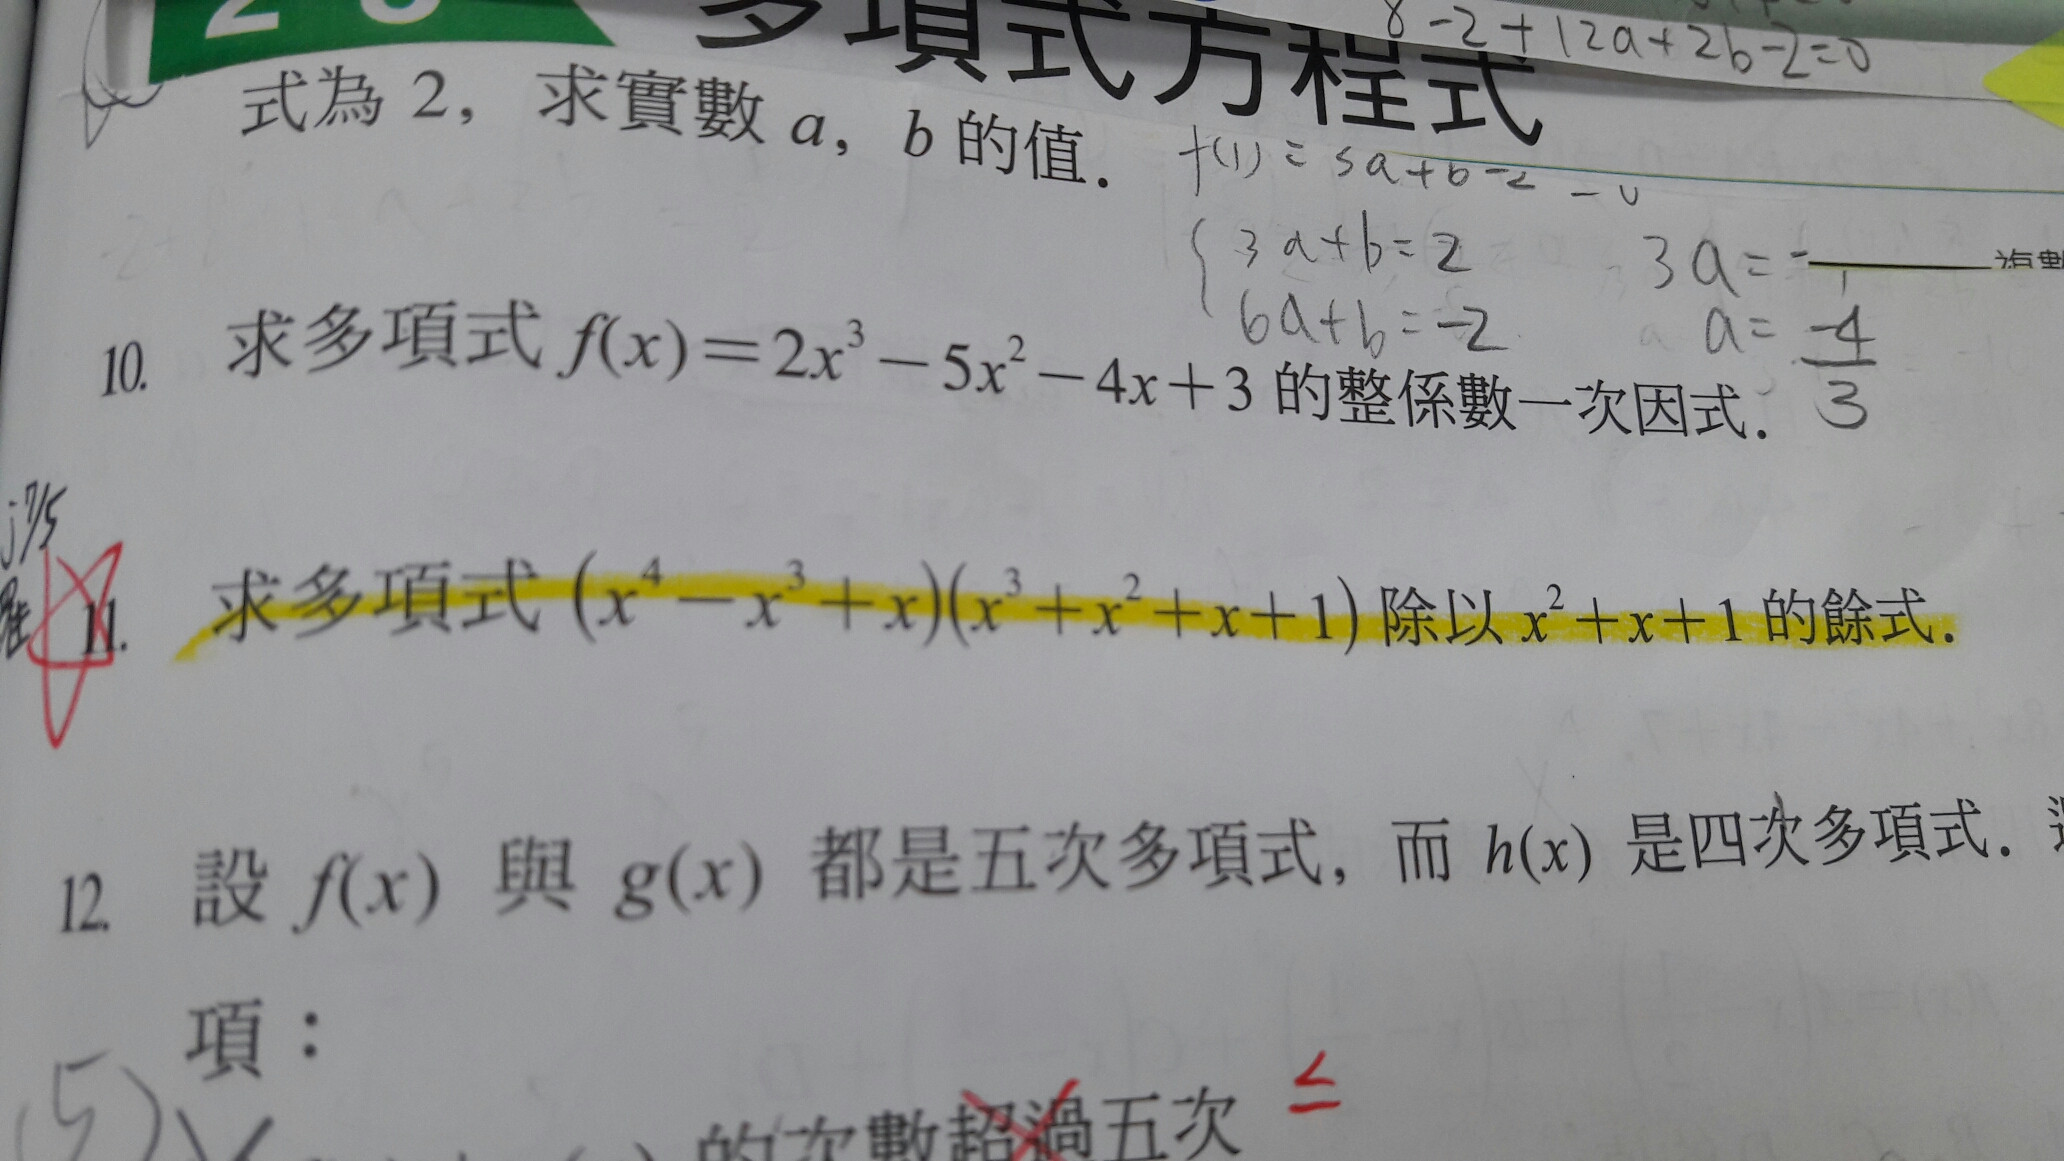 多項式方程式
8-2+12a+2b-2=0
式為 2, 求實數 a, b 的值.
f(1)=3a+b-2=0
3a+b=2
6a+b=-2
3a=-
a=-4/3
複數
10. 求多項式 f(x)=2x³-5x²-4x+3 的整係數一次因式.
11. 求多項式 (x⁴-x³+x)(x³+x²+x+1) 除以 x²+x+1 的餘式.
12. 設 f(x) 與 g(x) 都是五次多項式, 而 h(x) 是四次多項式.
項:
(5)
的次數超過五次 ≤